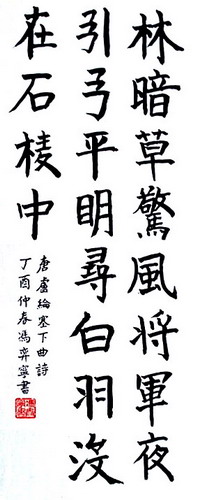 林暗草驚風将軍夜
引弓平明尋白羽没
在石棱中
唐盧綸塞下曲詩
丁酉仲春馮弈寧書